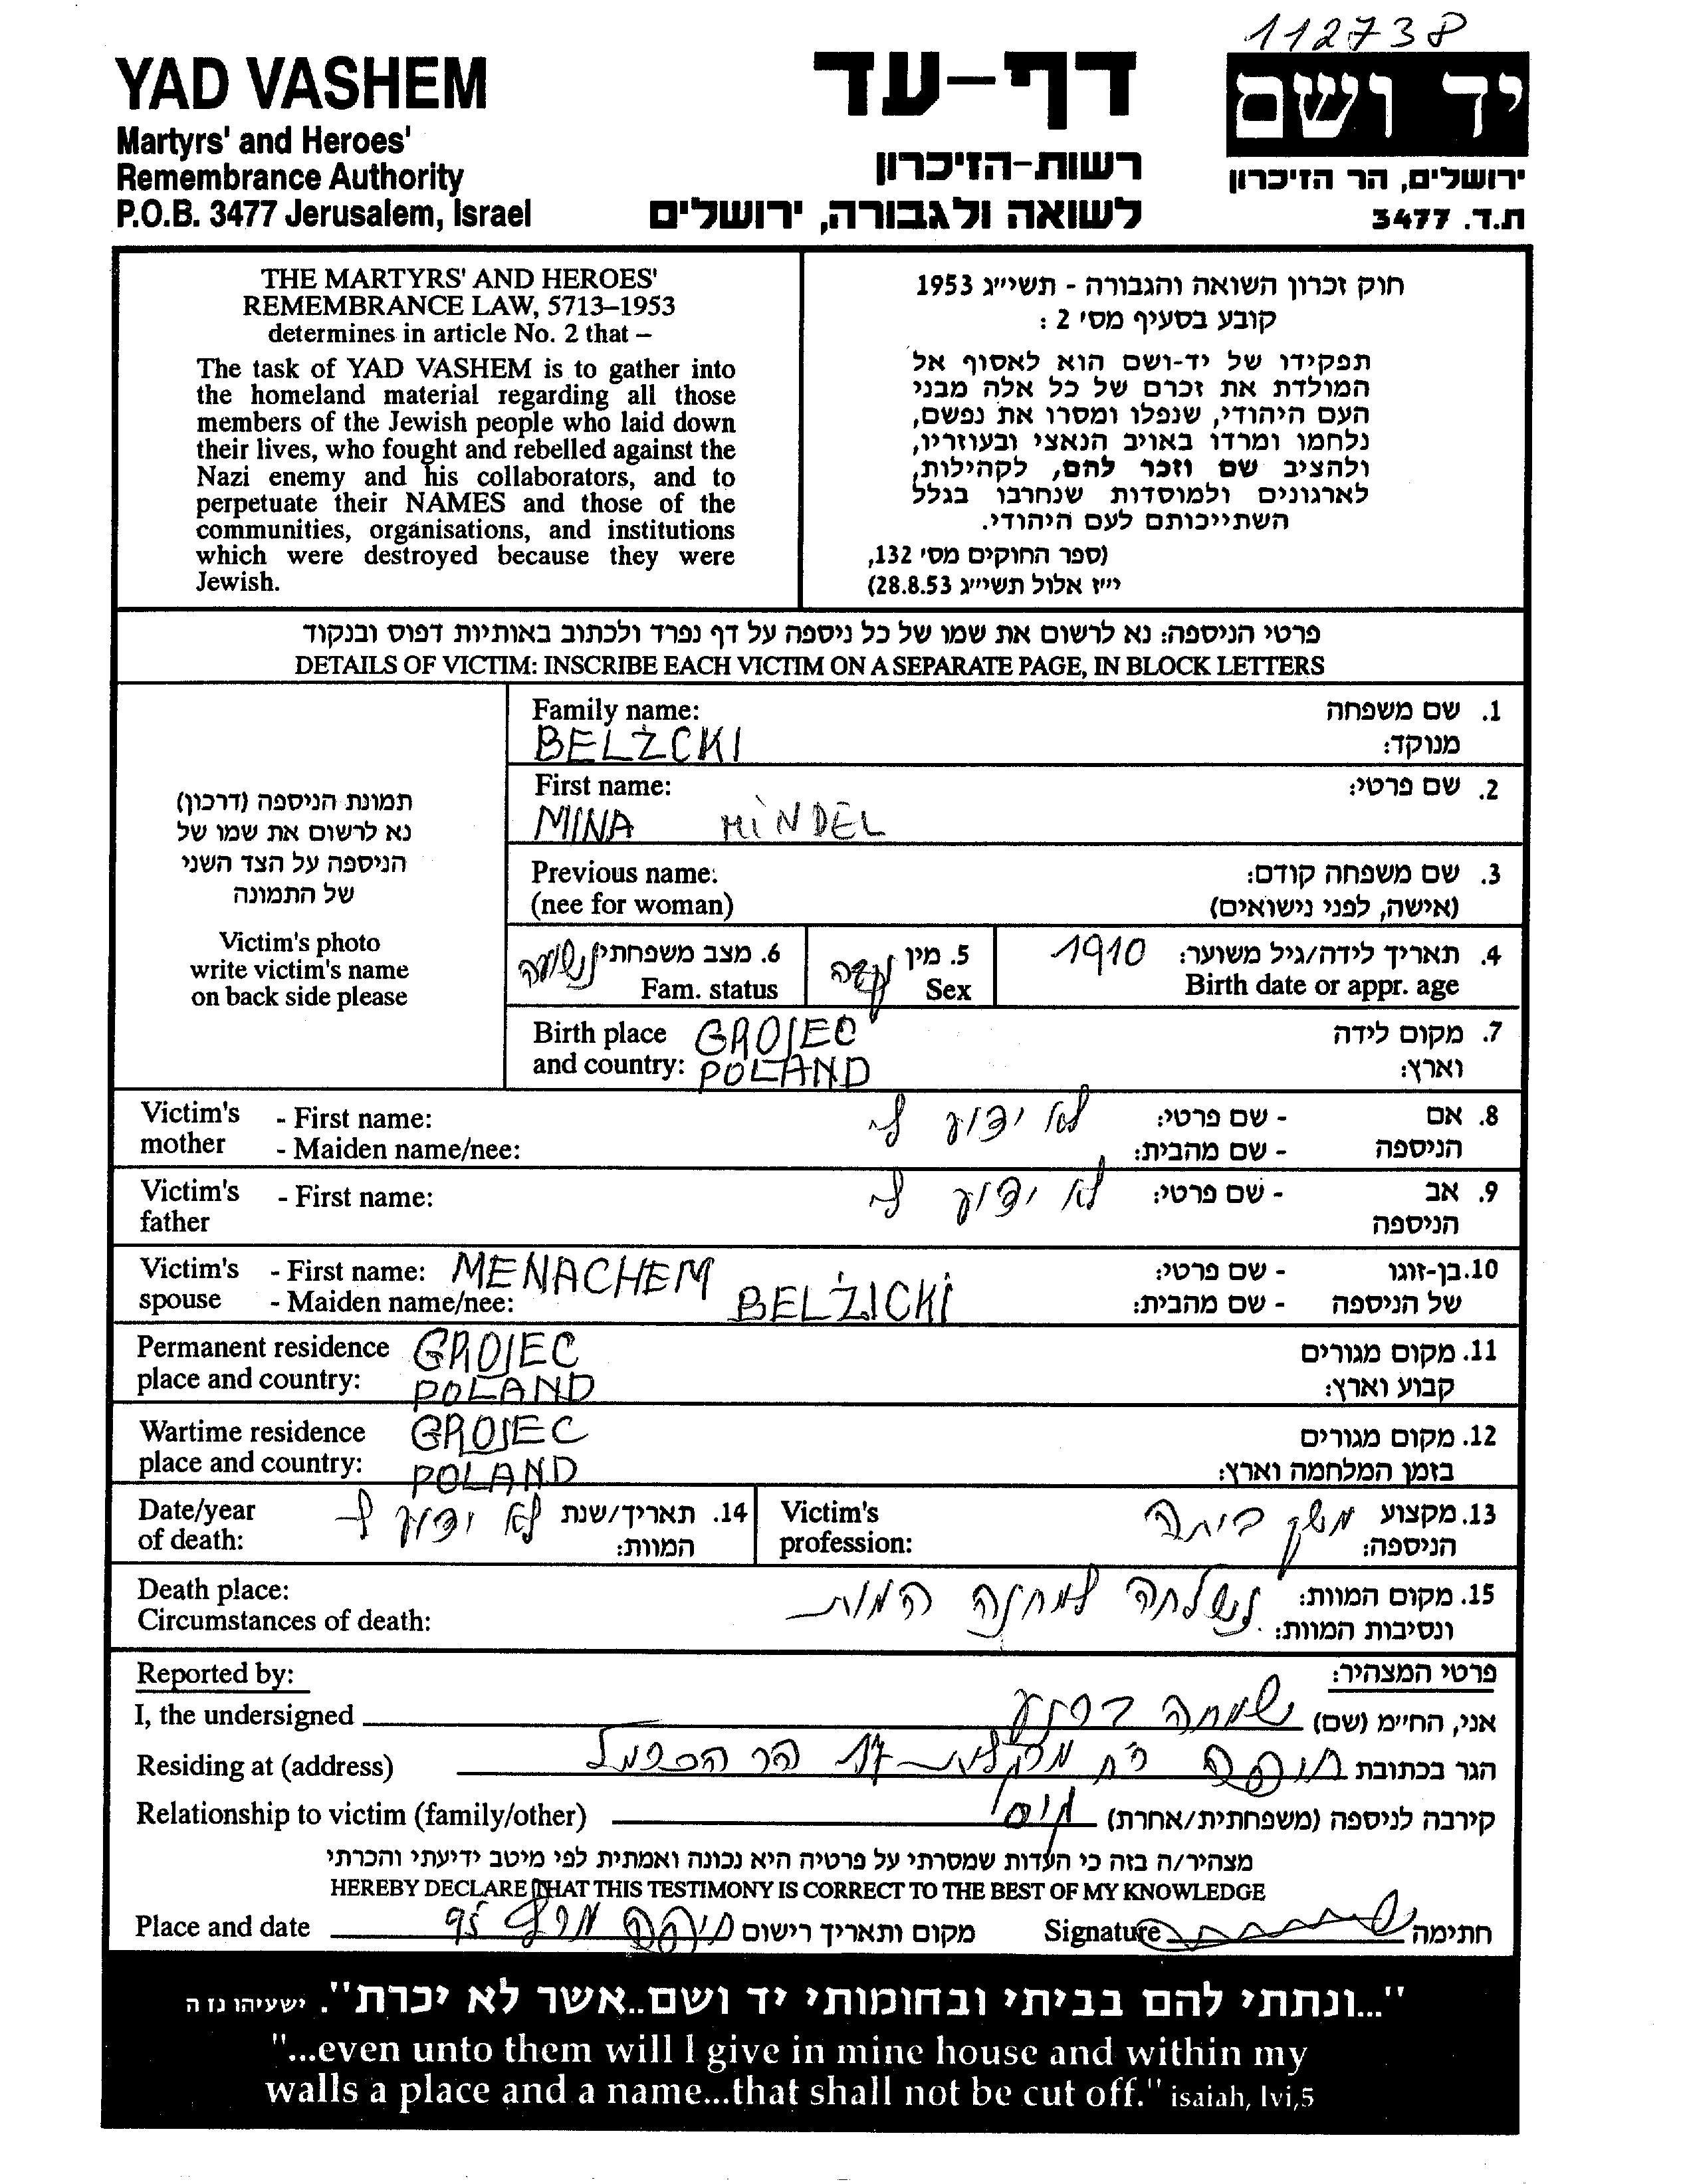 112738
YAD VASHEM
Martyrs' and Heroes'
Remembrance Authority
P.O.B. 3477 Jerusalem, Israel
דף-עד
רשות-הזיכרון
לשואה ולגבורה, ירושלים
יד ושם
ירושלים, הר הזיכרון
ת.ד. 3477
THE MARTYRS' AND HEROES'
REMEMBRANCE LAW, 5713–1953
determines in article No. 2 that –
The task of YAD VASHEM is to gather into
the homeland material regarding all those
members of the Jewish people who laid down
their lives, who fought and rebelled against the
Nazi enemy and his collaborators, and to
perpetuate their NAMES and those of the
communities, organisations, and institutions
which were destroyed because they were
Jewish.
חוק זכרון השואה והגבורה - תשי״ג 1953
קובע בסעיף מס׳ 2 :
תפקידו של יד-ושם הוא לאסוף אל
המולדת את זכרם של כל אלה מבני
העם היהודי, שנפלו ומסרו את נפשם,
נלחמו ומרדו באויב הנאצי ובעוזריו,
ולהציב שם וזכר להם, לקהילות,
לארגונים ולמוסדות שנחרבו בגלל
השתייכותם לעם היהודי.
(ספר החוקים מס׳ 132,
י״ז אלול תשי״ג 28.8.53)
פרטי הניספה: נא לרשום את שמו של כל ניספה על דף נפרד ולכתוב באותיות דפוס ובנקוד
DETAILS OF VICTIM: INSCRIBE EACH VICTIM ON A SEPARATE PAGE, IN BLOCK LETTERS
תמונת הניספה (דרכון)
נא לרשום את שמו של
הניספה על הצד השני
של התמונה
Victim's photo
write victim's name
on back side please
Family name: 1. שם משפחה
BELŻCKI מנוקד:
First name: 2. שם פרטי:
MINA MINDEL
Previous name: 3. שם משפחה קודם:
(nee for woman) (אישה, לפני נישואים)
6. מצב משפחתי נשואה 5. מין נקבה 4. תאריך לידה/גיל משוער: 1910
Fam. status Sex Birth date or appr. age
Birth place GROJEC 7. מקום לידה
and country: POLAND וארץ:
Victim's - First name: 8. אם - שם פרטי: לא ידוע לי
mother - Maiden name/nee: הניספה - שם מהבית:
Victim's - First name: 9. אב - שם פרטי: לא ידוע לי
father הניספה
Victim's - First name: MENACHEM 10. בן-זוגו - שם פרטי:
spouse - Maiden name/nee: BELŻICKI של הניספה - שם מהבית:
Permanent residence GROJEC 11. מקום מגורים
place and country: POLAND קבוע וארץ:
Wartime residence GROJEC 12. מקום מגורים
place and country: POLAND בזמן המלחמה וארץ:
Date/year 14. תאריך/שנת לא ידוע לי Victim's 13. מקצוע משק ביתה
of death: המוות: profession: הניספה:
Death place: 15. מקום המוות: נשלחה למחנה המות
Circumstances of death: ונסיבות המוות:
Reported by: פרטי המצהיר:
I, the undersigned אני, החי״מ (שם) שמחה
Residing at (address) הגר בכתובת חיפה רח 17 הר הכרמל
Relationship to victim (family/other) קירבה לניספה (משפחתית/אחרת) גיסי
מצהיר/ה בזה כי העדות שמסרתי על פרטיה היא נכונה ואמתית לפי מיטב ידיעתי והכרתי
HEREBY DECLARE THAT THIS TESTIMONY IS CORRECT TO THE BEST OF MY KNOWLEDGE
Place and date מקום ותאריך רישום חיפה 95 Signature חתימה
"...ונתתי להם בביתי ובחומותי יד ושם..אשר לא יכרת". ישעיהו נז ה
"...even unto them will I give in mine house and within my
walls a place and a name...that shall not be cut off." isaiah, lvi,5